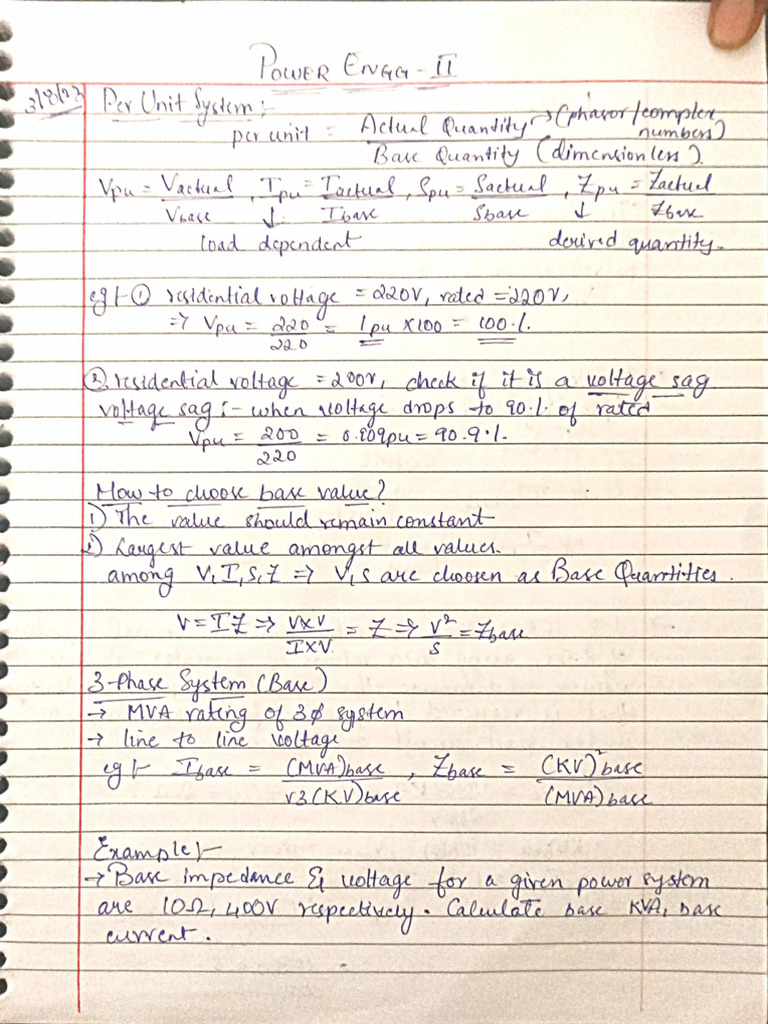 POWER ENGG - II
3/8/23 Per Unit System :-
per unit = Actual Quantity → (phasor/complex numbers)
Base Quantity (dimensionless).
Vpu = Vactual / Vbase, Ipu = Iactual / Ibase, Spu = Sactual / Sbase, Zpu = Zactual / Zbase
↓ ↓
load dependent derived quantity.
eg:- ① residential voltage = 220V, rated = 220V,
⇒ Vpu = 220/220 = 1pu × 100 = 100%.
② residential voltage = 200V, check if it is a voltage sag
voltage sag :- when voltage drops to 90% of rated
Vpu = 200/220 = 0.909pu = 90.9%.
How to choose base value?
1) The value should remain constant
2) Largest value amongst all values.
among V, I, S, Z ⇒ V, S are choosen as Base Quantities.
V = IZ ⇒ V×V / I×V = Z ⇒ V² / S = Zbase
3-Phase System (Base)
→ MVA rating of 3ϕ system
→ line to line voltage
eg:- Ibase = (MVA)base / √3 (KV)base, Zbase = (KV)²base / (MVA)base
Example:-
→ Base impedance & voltage for a given power system
are 10Ω, 400V respectively. Calculate base KVA, base
current.